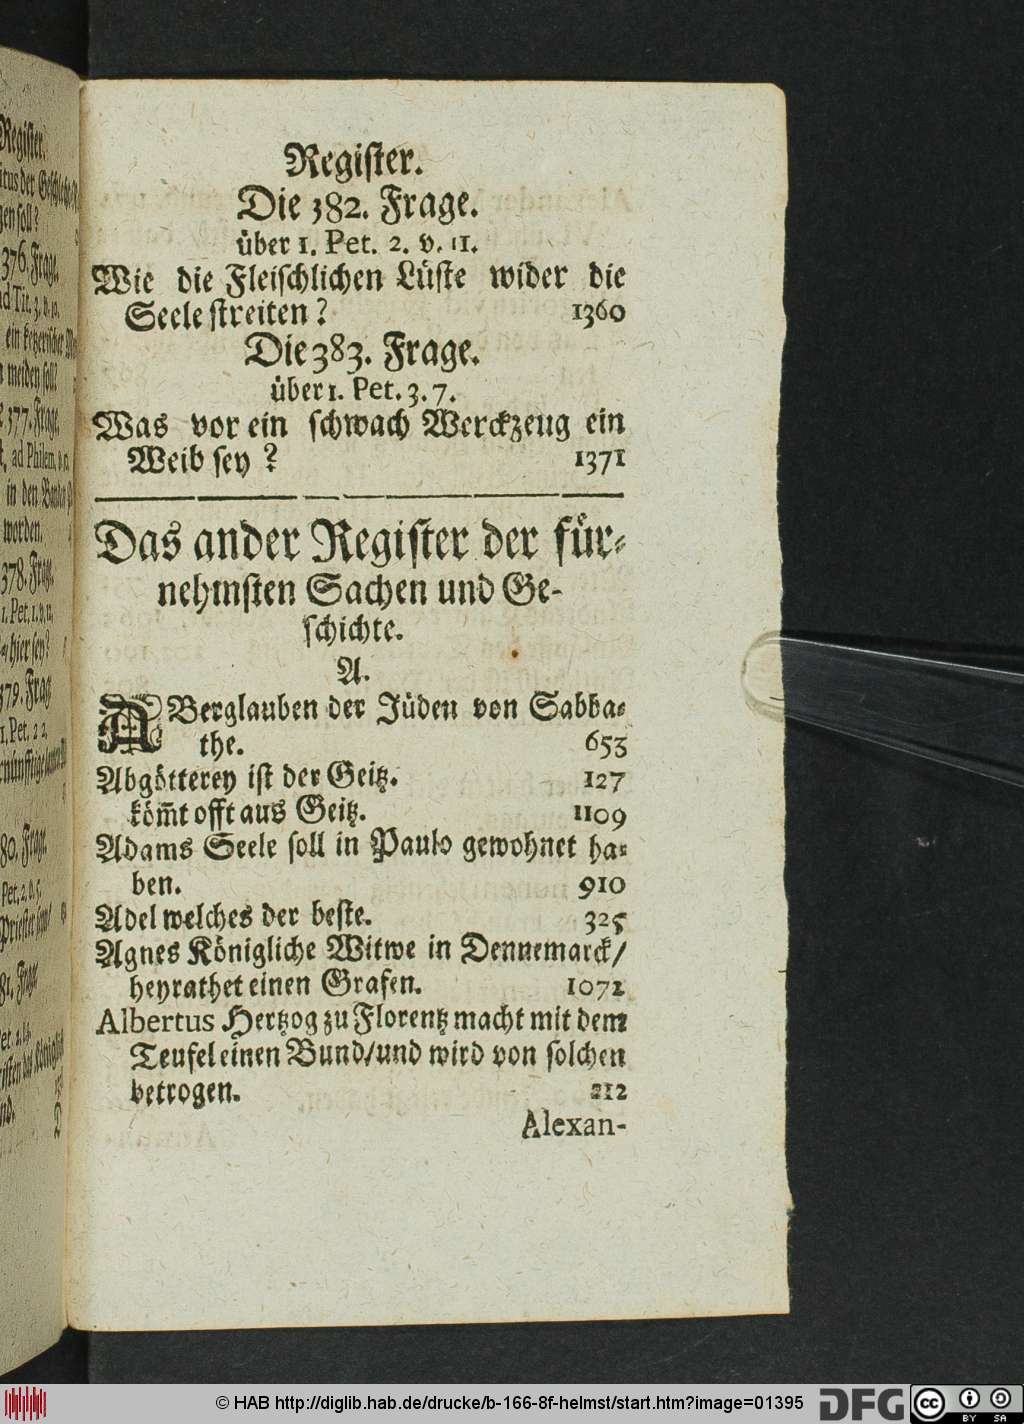 Register.
Die 382. Frage.
über 1. Pet. 2. v. 11.
Wie die Fleischlichen Lüste wider die
Seele streiten? 1360
Die 383. Frage.
über 1. Pet. 3. 7.
Was vor ein schwach Werckzeug ein
Weib sey? 1371
Das ander Register der für⸗
nehmsten Sachen und Ge-
schichte.
A.
ABerglauben der Jüden von Sabba⸗
the. 653
Abgötterey ist der Geitz. 127
köm̅t offt aus Geitz. 1109
Adams Seele soll in Paulo gewohnet ha⸗
ben. 910
Adel welches der beste. 325
Agnes Königliche Witwe in Dennemarck/
heyrathet einen Grafen. 1072
Albertus Hertzog zu Florentz macht mit dem
Teufel einen Bund/und wird von solchen
betrogen. 212
Alexan-
© HAB http://diglib.hab.de/drucke/b-166-8f-helmst/start.htm?image=01395
DFG
cc
BY SA